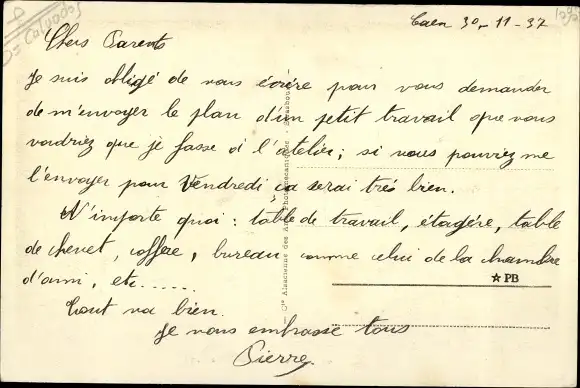 Dt Calvados
Caen 30-11-37
Chers Parents
Je suis obligé de vous écrire pour vous demander
de m'envoyer le plan d'un petit travail que vous
voudriez que je fasse à l'atelier; si vous pouviez me
l'envoyer pour Vendredi ça serai très bien.
N'importe quoi : table de travail, étagère, table
de chevet, coffre, bureau comme celui de la chambre
d'ami, etc......
Tout va bien.
Je vous embrasse tous
Pierre.
Cie Alsacienne des Arts Photomécaniques - Strasbourg
★PB